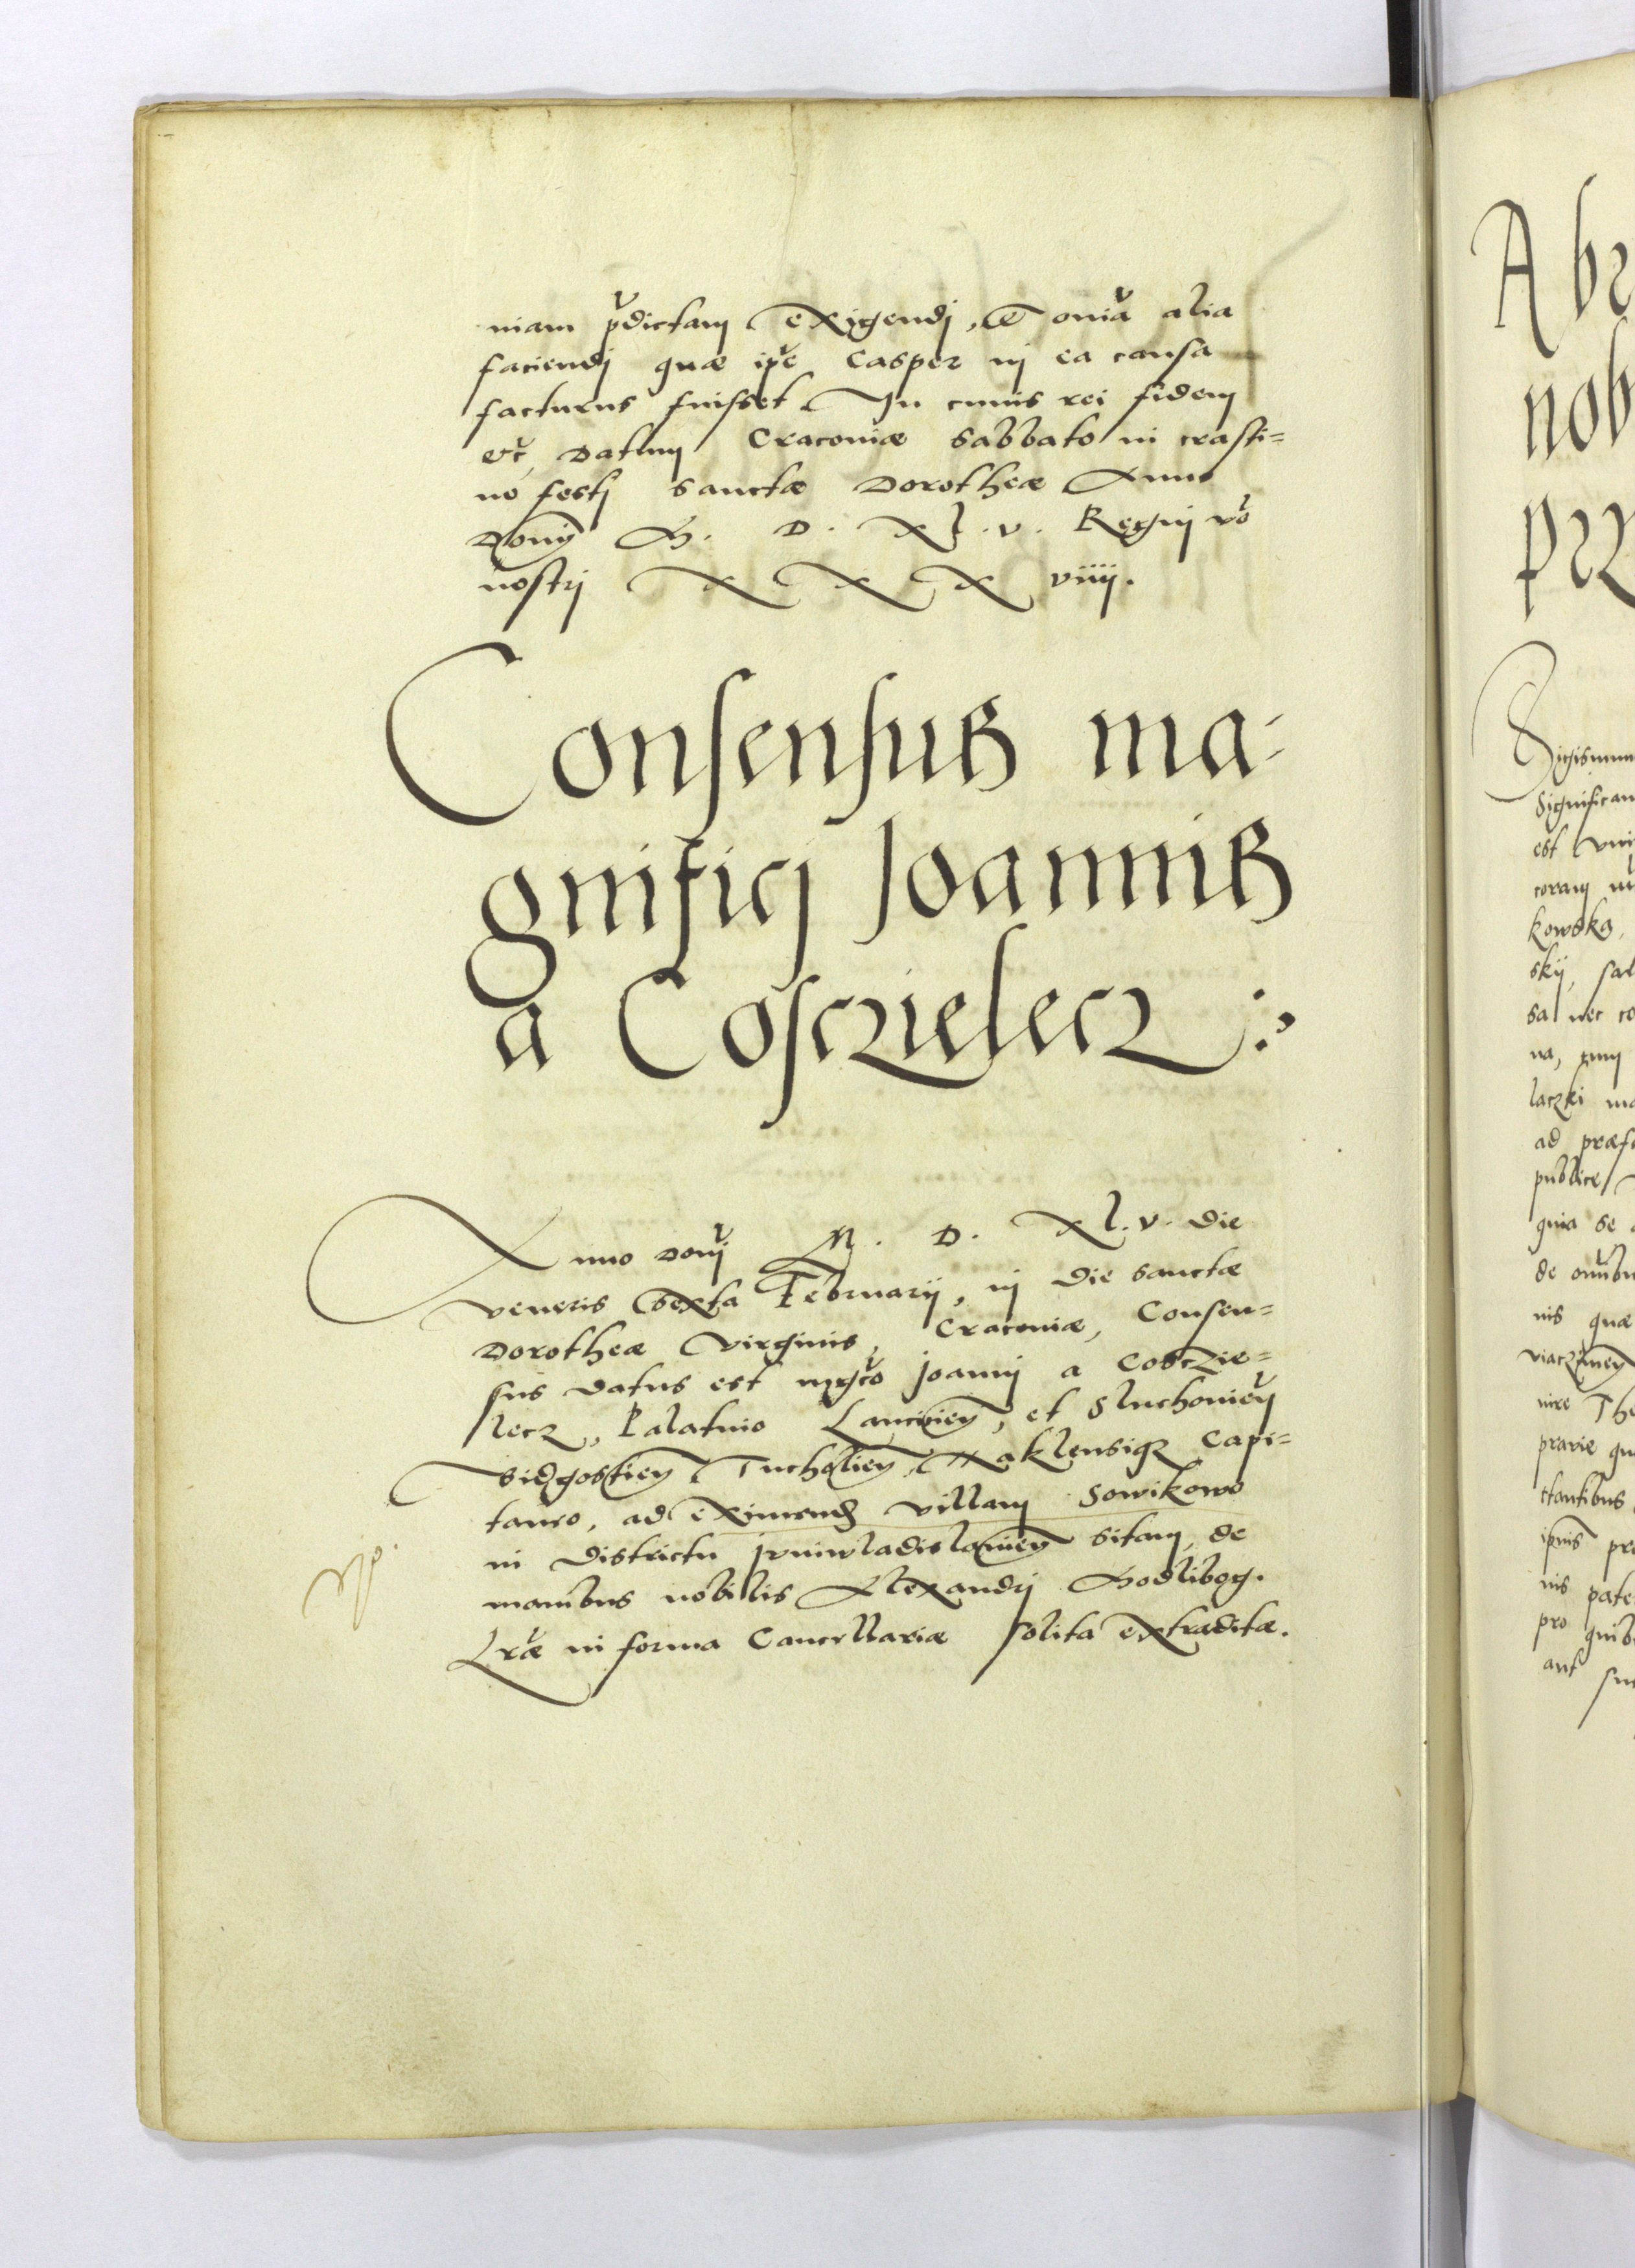 niam p̃dictam exigendj, et om̃ia alia
faciendj quæ ip̃e Casper in ea causa
facturus fuisset In cuius rei fidem
etc̃ Datum Cracoviæ Sabbato in crasti=
no festj Sanctæ Dorotheæ Anno
Domj̃ M. D. Xl. v. Regnj võ
nostrj XXX viiij.
Consensus ma-
gnificj Joannis
a Cosczielecz :
Anno Domj̃ M. D. Xl. v. die
veneris sexta Februarij, in die sanctæ
Dorotheæ virginis, Cracoviæ, Consen=
sus datus est mgc̃o Joannj a Cosczie=
lecz, Palatino Lancicien̄, et Sluchovien̄
Bidgostien̄ Tucholien̄, Naklensiqz Capi=
taneo, ad eximend villam Sowikowo
in districtu Jvniwladislavien̄ sitam, de
manibus nobilis Alexandrj Godlibog.
Lr̃æ in forma Cancellariæ solita extraditæ.
Abr
nob
prz
Sigismun
Significam
est
coram
kowska,
skij, sal
sa nec co
na, cum
laczki ma
ad præs
publice
quia se
de om̃ibu
nis quæ
nire Th
pravie qu
ctantibus
pate
pro quib
aut su